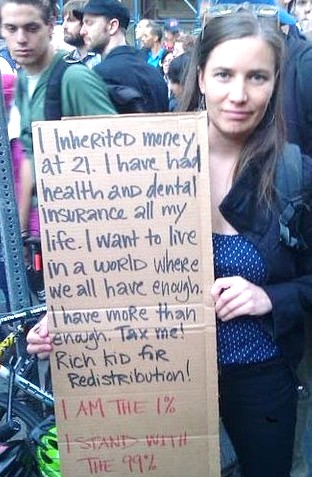 I Inherited money
at 21. I have had
health and dental
Insurance all my
life. I want to live
in a world where
we all have enough.
I have more than
enough. Tax me!
Rich kid for
Redistribution!
I AM THE 1%
I STAND WITH
THE 99%